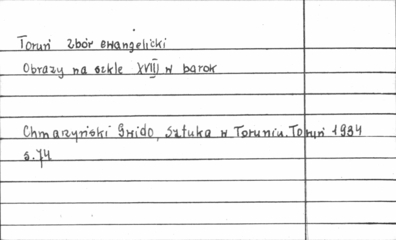 Toruń zbór ewangelicki
Obrazy na szkle XVIII w barok
Chmarzyński Gwido, Sztuka w Toruniu. Toruń 1934
s. 74